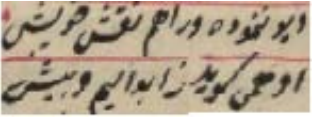 ابو نموده ورا هم نقش خویش
او همی‌ گوید ز ابدالیم و بیش